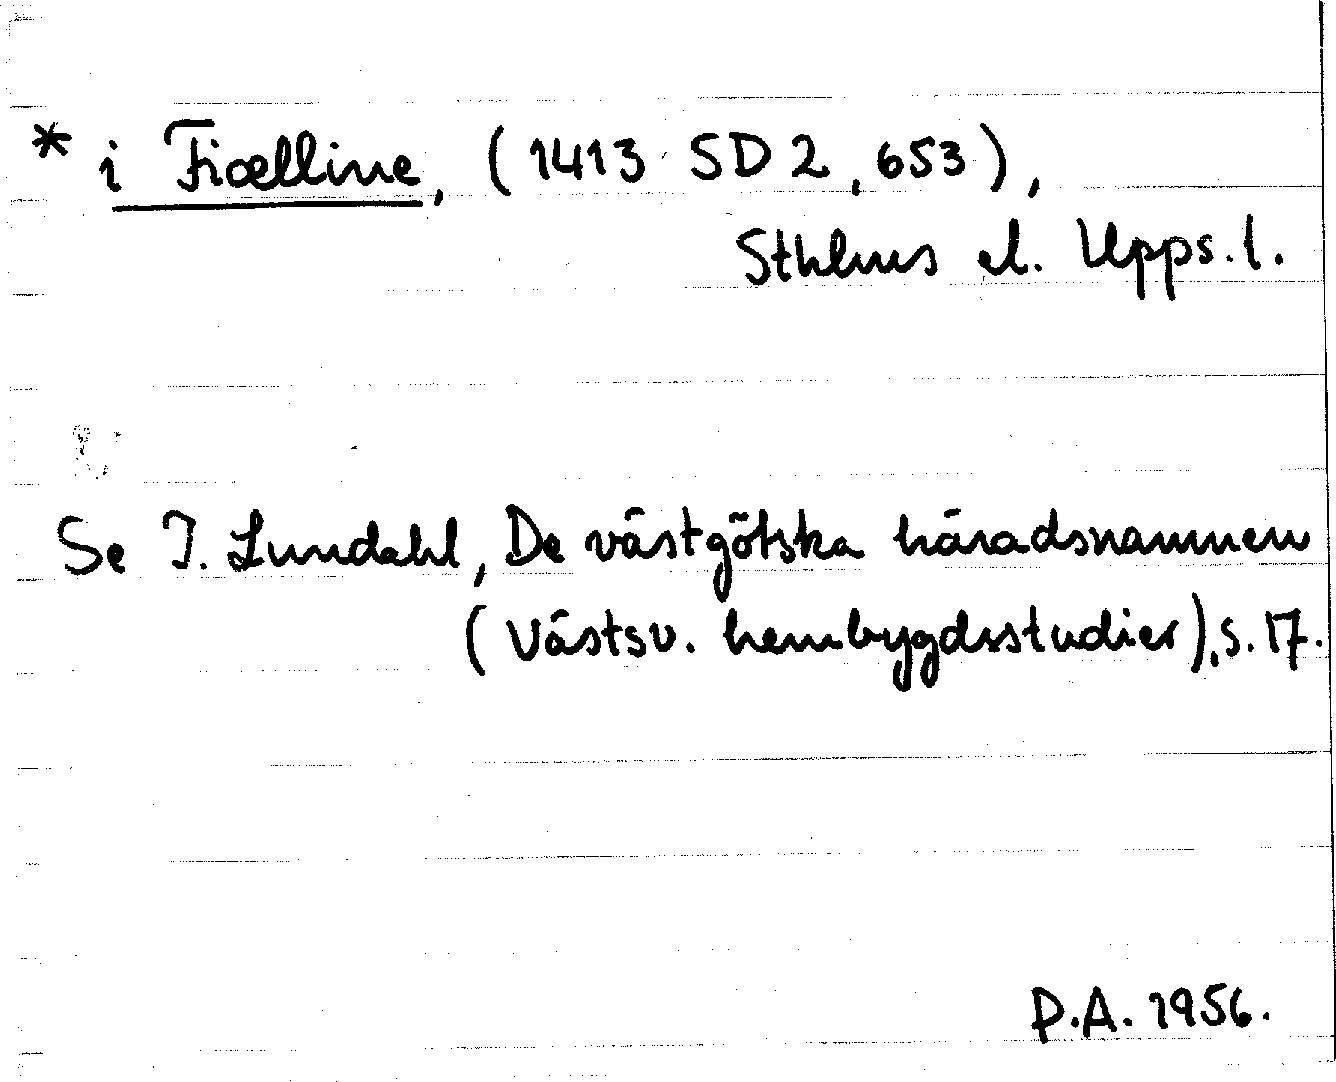 * i Fiælline, (1413 SD 2, 653),
Sthlms el. Upps. l.
Se I. Lundahl, De västgötska häradsnamnen
(Västsv. hembygdsstudier), s. 17.
P.A. 1956.